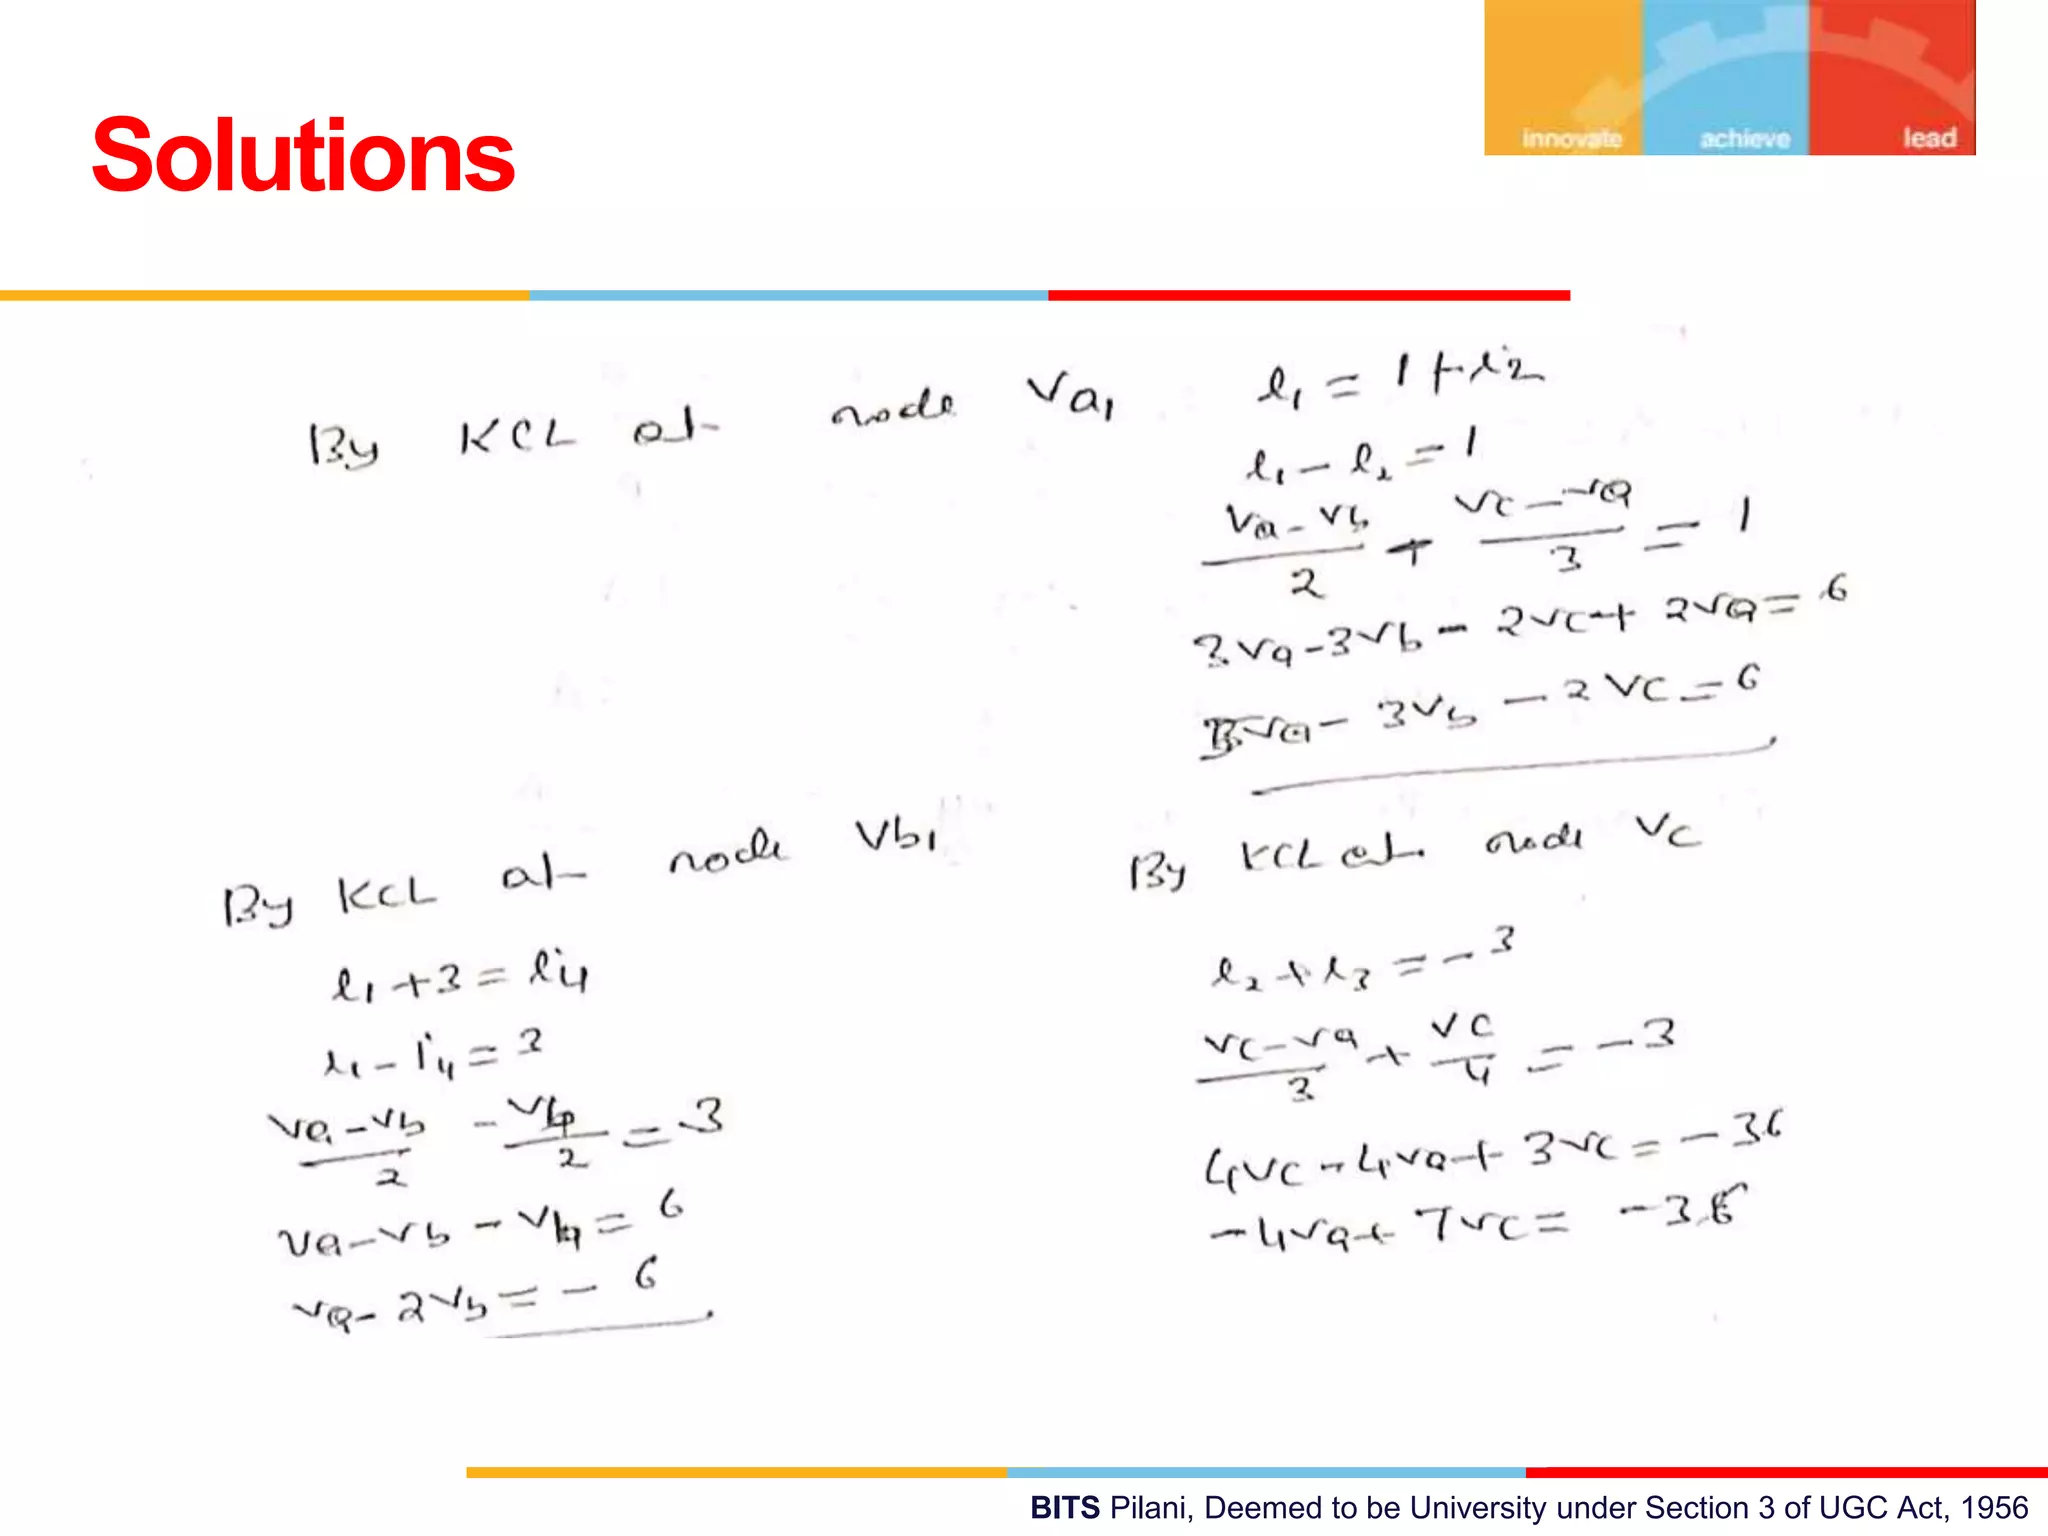 innovate achieve lead
Solutions
By KCL at node Va, i₁ = 1 + i₂
i₁ - i₂ = 1
Va - Vb / 2 + Vc - Va / 3 = 1
3Va - 3Vb - 2Vc + 2Va = 6
5Va - 3Vb - 2Vc = 6
By KCL at node Vb,
i₁ + 3 = i₄
i₁ - i₄ = 3
Va - Vb / 2 - Vb / 2 = -3
Va - Vb - Vb = 6
Va - 2Vb = - 6
By KCL at node Vc
i₂ + i₃ = - 3
Vc - Va / 3 + Vc / 4 = - 3
4Vc - 4Va + 3Vc = - 36
- 4Va + 7Vc = - 36
BITS Pilani, Deemed to be University under Section 3 of UGC Act, 1956